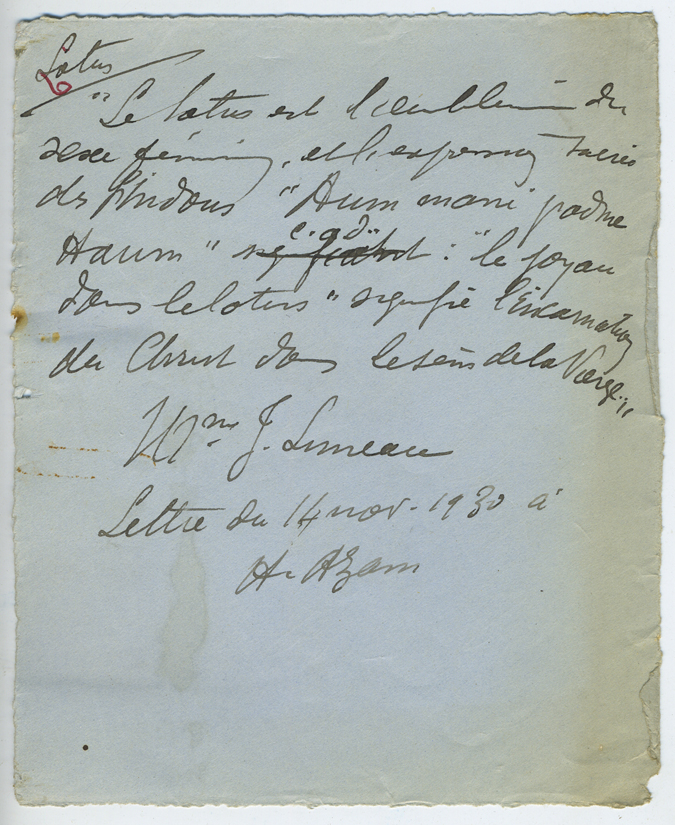 Lotus
"Le lotus est l'emblème du
sexe féminin, et l'expression sacrée
des Hindous "Aum mani padme
Haum" c.a.d. : "le joyau
dans le lotus" signifie l'Incarnation
du Christ dans le sein de la Vierge."
Mme J. Luneau
Lettre du 14 nov. 1930 à
H. Azam